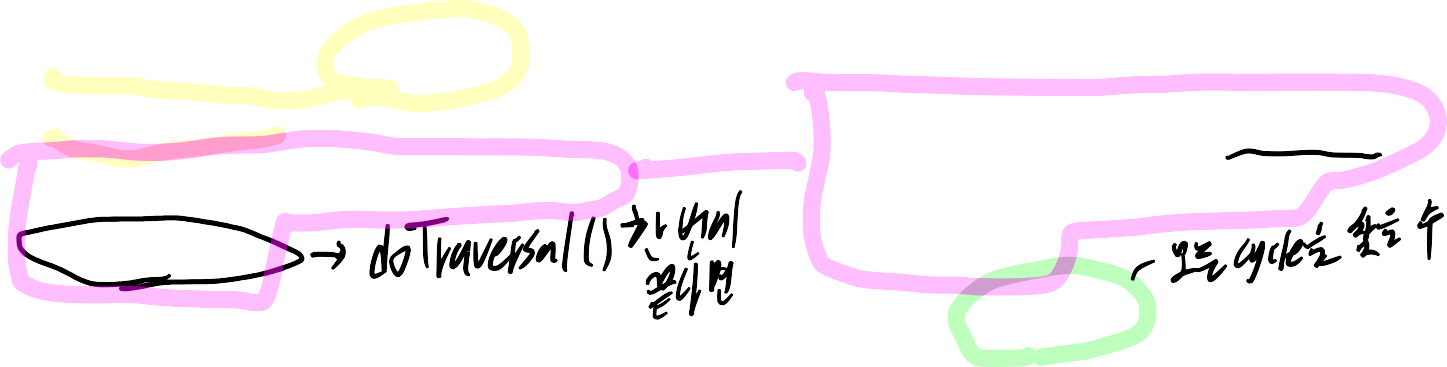 → doTraversal() 한 번에
끝나면
모든 cycle을 찾을 수